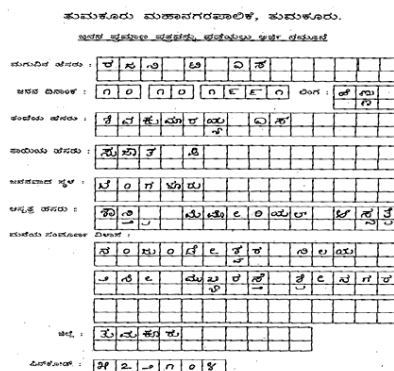 ತುಮಕೂರು ಮಹಾನಗರಪಾಲಿಕೆ, ತುಮಕೂರು.
ಜನನ ಪ್ರಮಾಣ ಪತ್ರವನ್ನು ಪಡೆಯಲು ಅರ್ಜಿ ನಮೂನೆ
ಮಗುವಿನ ಹೆಸರು : ರಜನಿ ಎಸ್
ಜನನ ದಿನಾಂಕ : ೧೦ ೧೦ ೧೯೯೧ ಲಿಂಗ : ಹೆಣ್ಣು
ತಂದೆಯ ಹೆಸರು : ಶಿವಕುಮಾರಯ್ಯ ಎಸ
ತಾಯಿಯ ಹೆಸರು : ಸುಜಾತ
ಜನನವಾದ ಸ್ಥಳ : ಬೆಂಗಳೂರು
ಆಸ್ಪತ್ರೆ ಹೆಸರು : ಮೆಮೋರಿಯಲ್ ಆಸ್ಪತ್ರೆ
ಮನೆಯ ಸಂಪೂರ್ಣ ವಿಳಾಸ :
ನಂಜುಂಡೇಶ್ವರ ನಿಲಯ
೨ನೇ ಮುಖ್ಯರಸ್ತೆ ನಗರ
ಜಿಲ್ಲೆ : ತುಮಕೂರು
ಪಿನ್‌ಕೋಡ್ : ೫೨೨೧೦೪